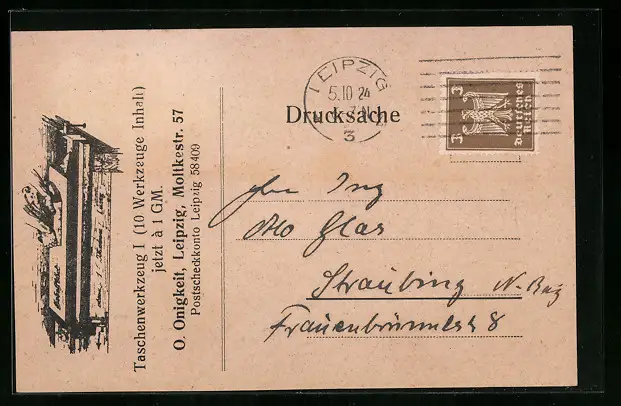 Taschenwerkzeug I (10 Werkzeuge Inhalt)
jetzt à 1 GM.
O. Onigkeit, Leipzig, Moltkestr. 57
Postscheckkonto Leipzig 58409
LEIPZIG
5.10 24
3
Drucksache
3 3
Deutsches
Reich
Ing
Otto Glas
Straubing N.-Bay
Frauenbrünnlstr 8